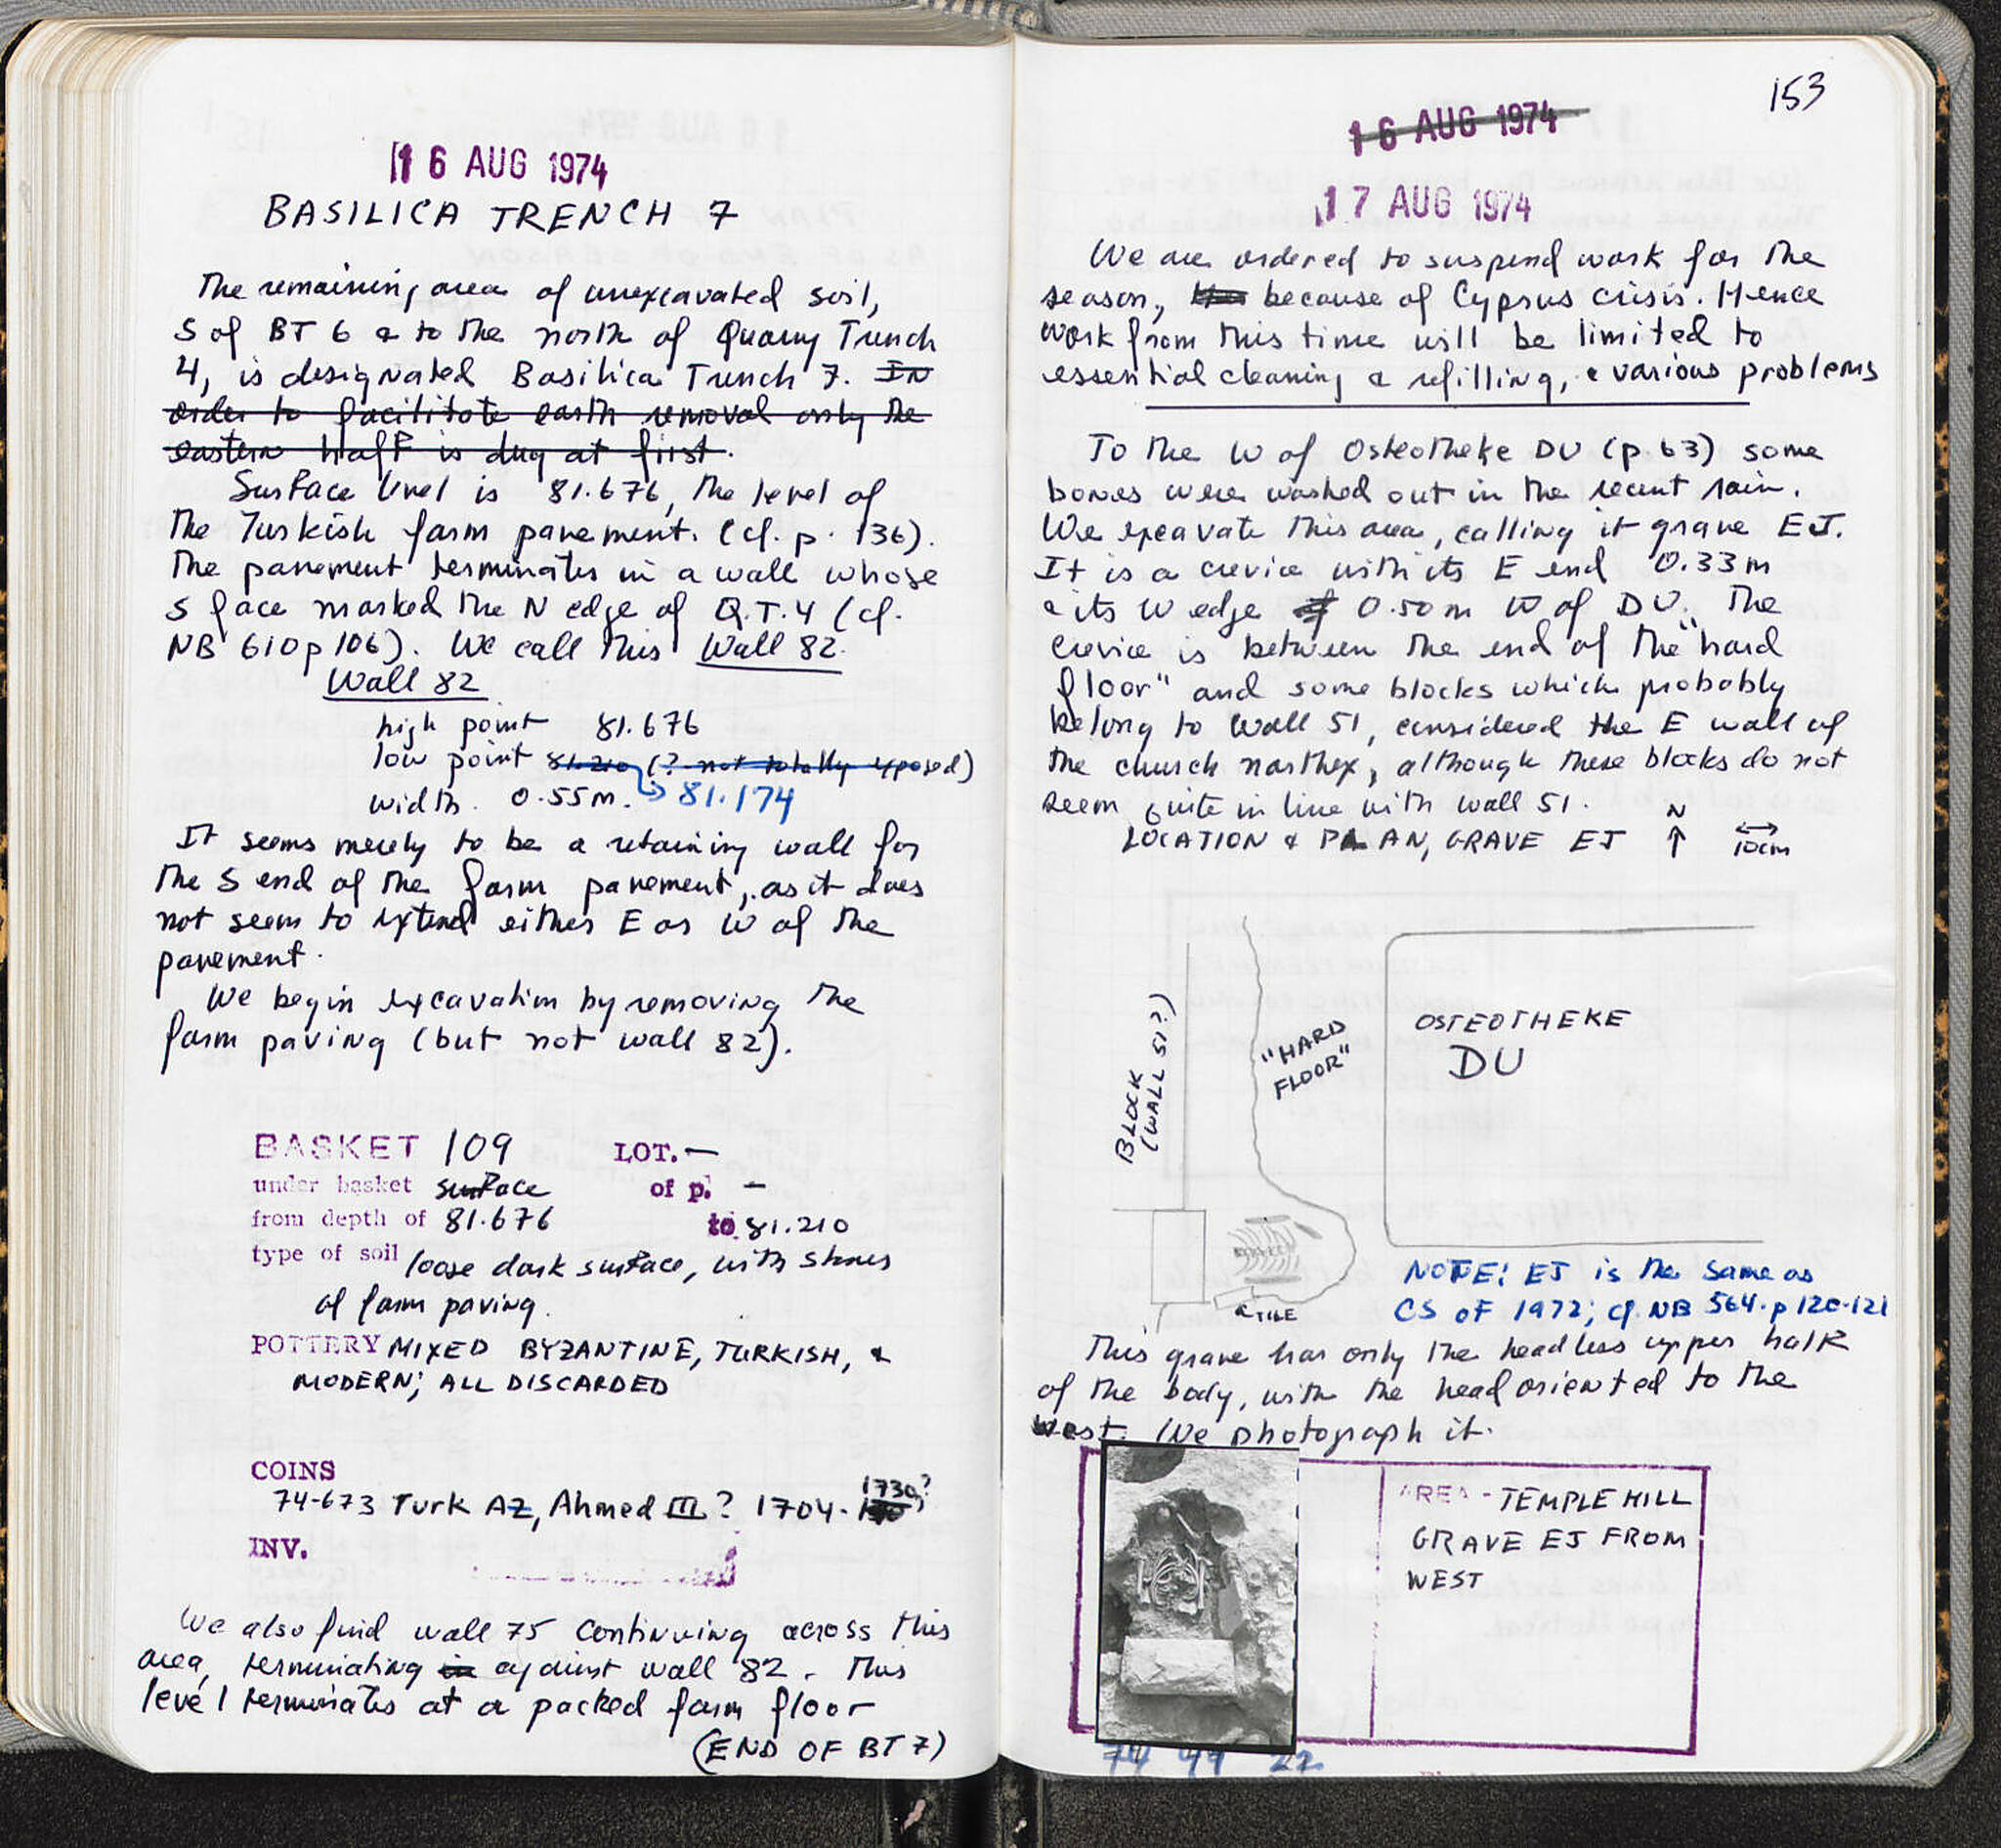 16 AUG 1974
BASILICA TRENCH 7
The remaining area of unexcavated soil,
S of BT 6 & to the north of Quarry Trench
4, is designated Basilica Trench 7. In
order to facilitate earth removal only the
eastern half is dug at first.
Surface level is 81.676, the level of
the Turkish farm pavement. (cf. p. 136).
The pavement terminates in a wall whose
S face marked the N edge of Q.T.4 (cf.
NB 610 p 106). We call this Wall 82.
Wall 82
high point 81.676
low point 81.210 (? not totally exposed)
width. 0.55m. 81.174
It seems merely to be a retaining wall for
the S end of the farm pavement, as it does
not seem to extend either E or W of the
pavement.
We begin excavation by removing the
farm paving (but not wall 82).
BASKET 109 LOT. —
under basket surface of p. —
from depth of 81.676 to 81.210
type of soil loose dark surface, with stones
of farm paving.
POTTERY MIXED BYZANTINE, TURKISH, &
MODERN; ALL DISCARDED
COINS
74-673 Turk AZ, Ahmed III? 1704-1730?
INV.
We also find wall 75 continuing across this
area, terminating in against wall 82. This
level terminates at a packed farm floor
(END OF BT 7)
153
16 AUG 1974
17 AUG 1974
We are ordered to suspend work for the
season, because of Cyprus crisis. Hence
work from this time will be limited to
essential cleaning & refilling, & various problems
To the W of Osteotheke DU (p. 63) some
bones were washed out in the recent rain.
We excavate this area, calling it grave EJ.
It is a crevice with its E end 0.33m
& its W edge 0.50m W of DU. The
crevice is between the end of the "hard
floor" and some blocks which probably
belong to Wall 51, considered the E wall of
the church narthex, although these blocks do not
seem quite in line with wall 51.
LOCATION & PLAN, GRAVE EJ N 10cm
BLOCK
(WALL 51?)
"HARD
FLOOR"
OSTEOTHEKE
DU
TILE
NOTE: EJ is the same as
CS of 1972; cf. NB 564. p 120-121
This grave has only the headless upper half
of the body, with the head oriented to the
west. We photograph it.
AREA - TEMPLE HILL
GRAVE EJ FROM
WEST
74 49 22